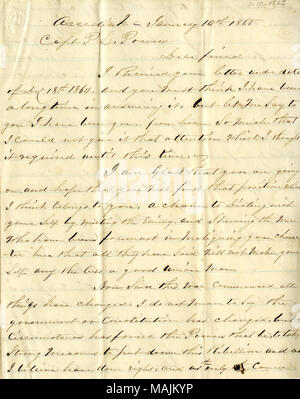 1-10-1865
Arcadia Mo January 10th 1865
Capt P. L. Powers
Dear friend
I Received your letter under date
of Dec 18th 1864 and you must think I have been
a long time in answering it. but let me say to
you I have been gone from home so much that
I could not give it that attention which I thought
it required until this time
I am Glad that you are going
on and hope that you will find that position which
I think belongs to you, a chance to Distinguish
your Self by meeting the Enemy, and Showing the men
who have been foremost in Maligning your charac-
ter here that all they have Said will not make your
Self any the less a good Union Man
Now Since this war Commenced all
things have changed. I do not mean to Say the
government or Constitution has changed but
Circumstances has forced the Powers that be to take
Strong Measures to put down this Rebellion and as
I believe have done right, and
alamy
Image ID: MAJKYP
www.alamy.com